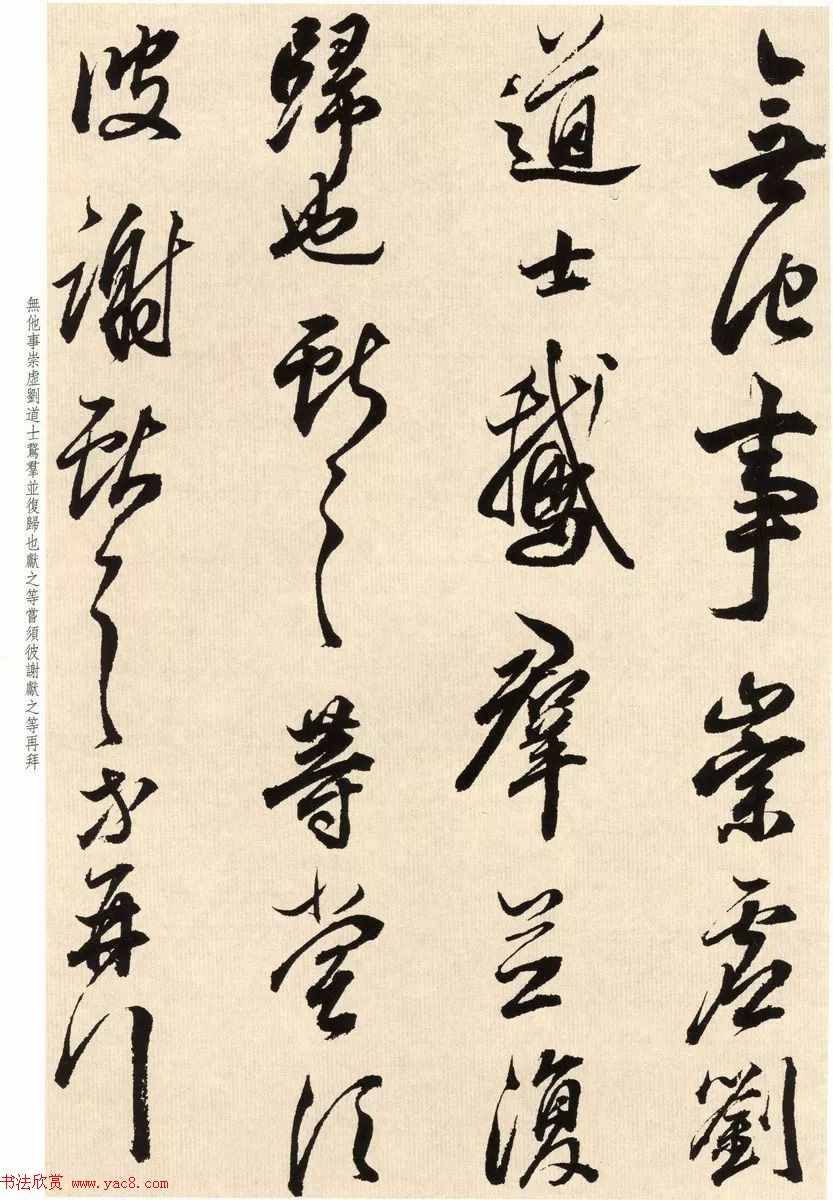 無他事崇虛劉
道士鵞羣並復
歸也獻之等當須
彼謝獻之等再拜
無他事崇虛劉道士鵞羣並復歸也獻之等當須彼謝獻之等再拜
书法欣赏 www.yac8.com